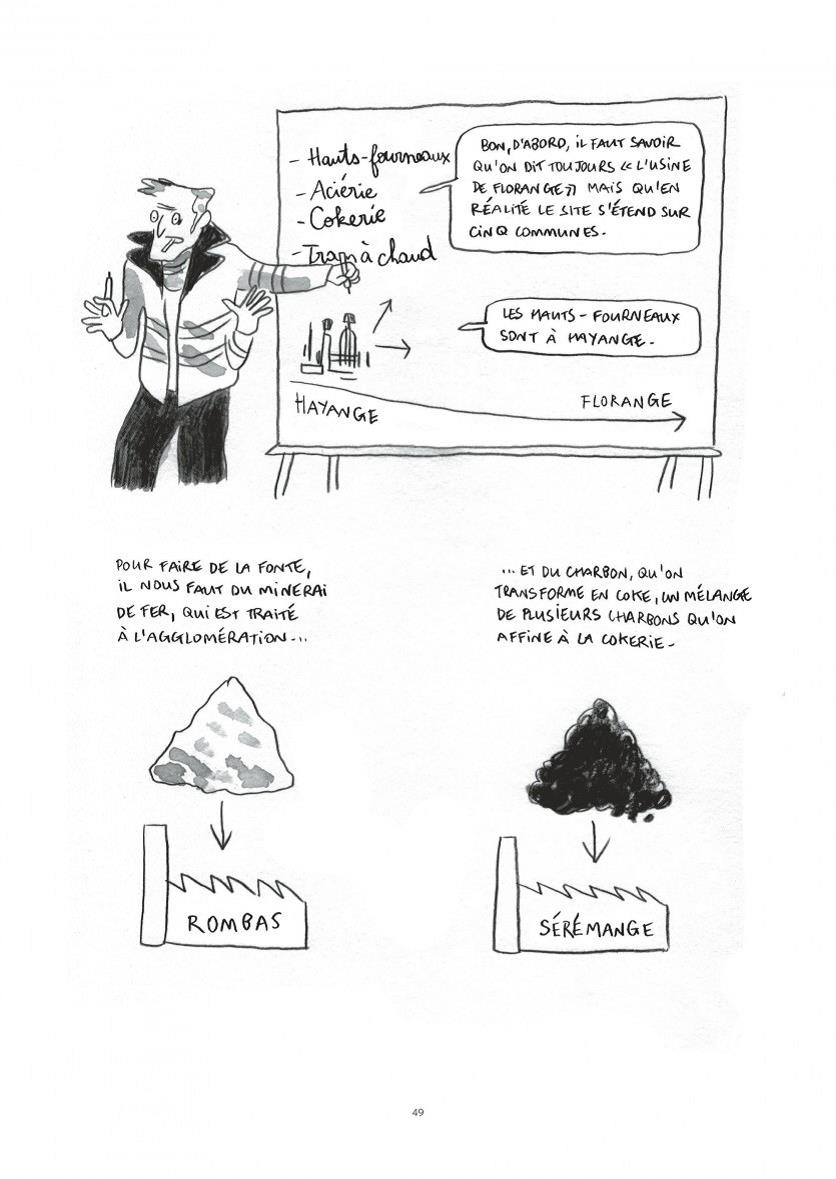 - Hauts-fourneaux
- Aciérie
- Cokerie
- Train à chaud
BON, D'ABORD, IL FAUT SAVOIR
QU'ON DIT TOUJOURS « L'USINE
DE FLORANGE » MAIS QU'EN
RÉALITÉ LE SITE S'ÉTEND SUR
CINQ COMMUNES.
LES HAUTS-FOURNEAUX
SONT À HAYANGE.
HAYANGE
FLORANGE
POUR FAIRE DE LA FONTE,
IL NOUS FAUT DU MINERAI
DE FER, QUI EST TRAITÉ
À L'AGGLOMÉRATION...
... ET DU CHARBON, QU'ON
TRANSFORME EN COKE, UN MÉLANGE
DE PLUSIEURS CHARBONS QU'ON
AFFINE À LA COKERIE.
ROMBAS
SÉRÉMANGE
49